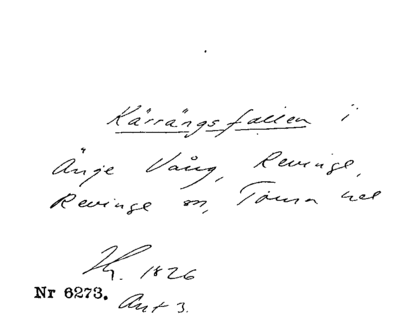 Kärrängsfallen i
Änge Vång, Revinge,
Revinge sn, Torna hd
Lh. 1826
Nr 6273. Akt 3.